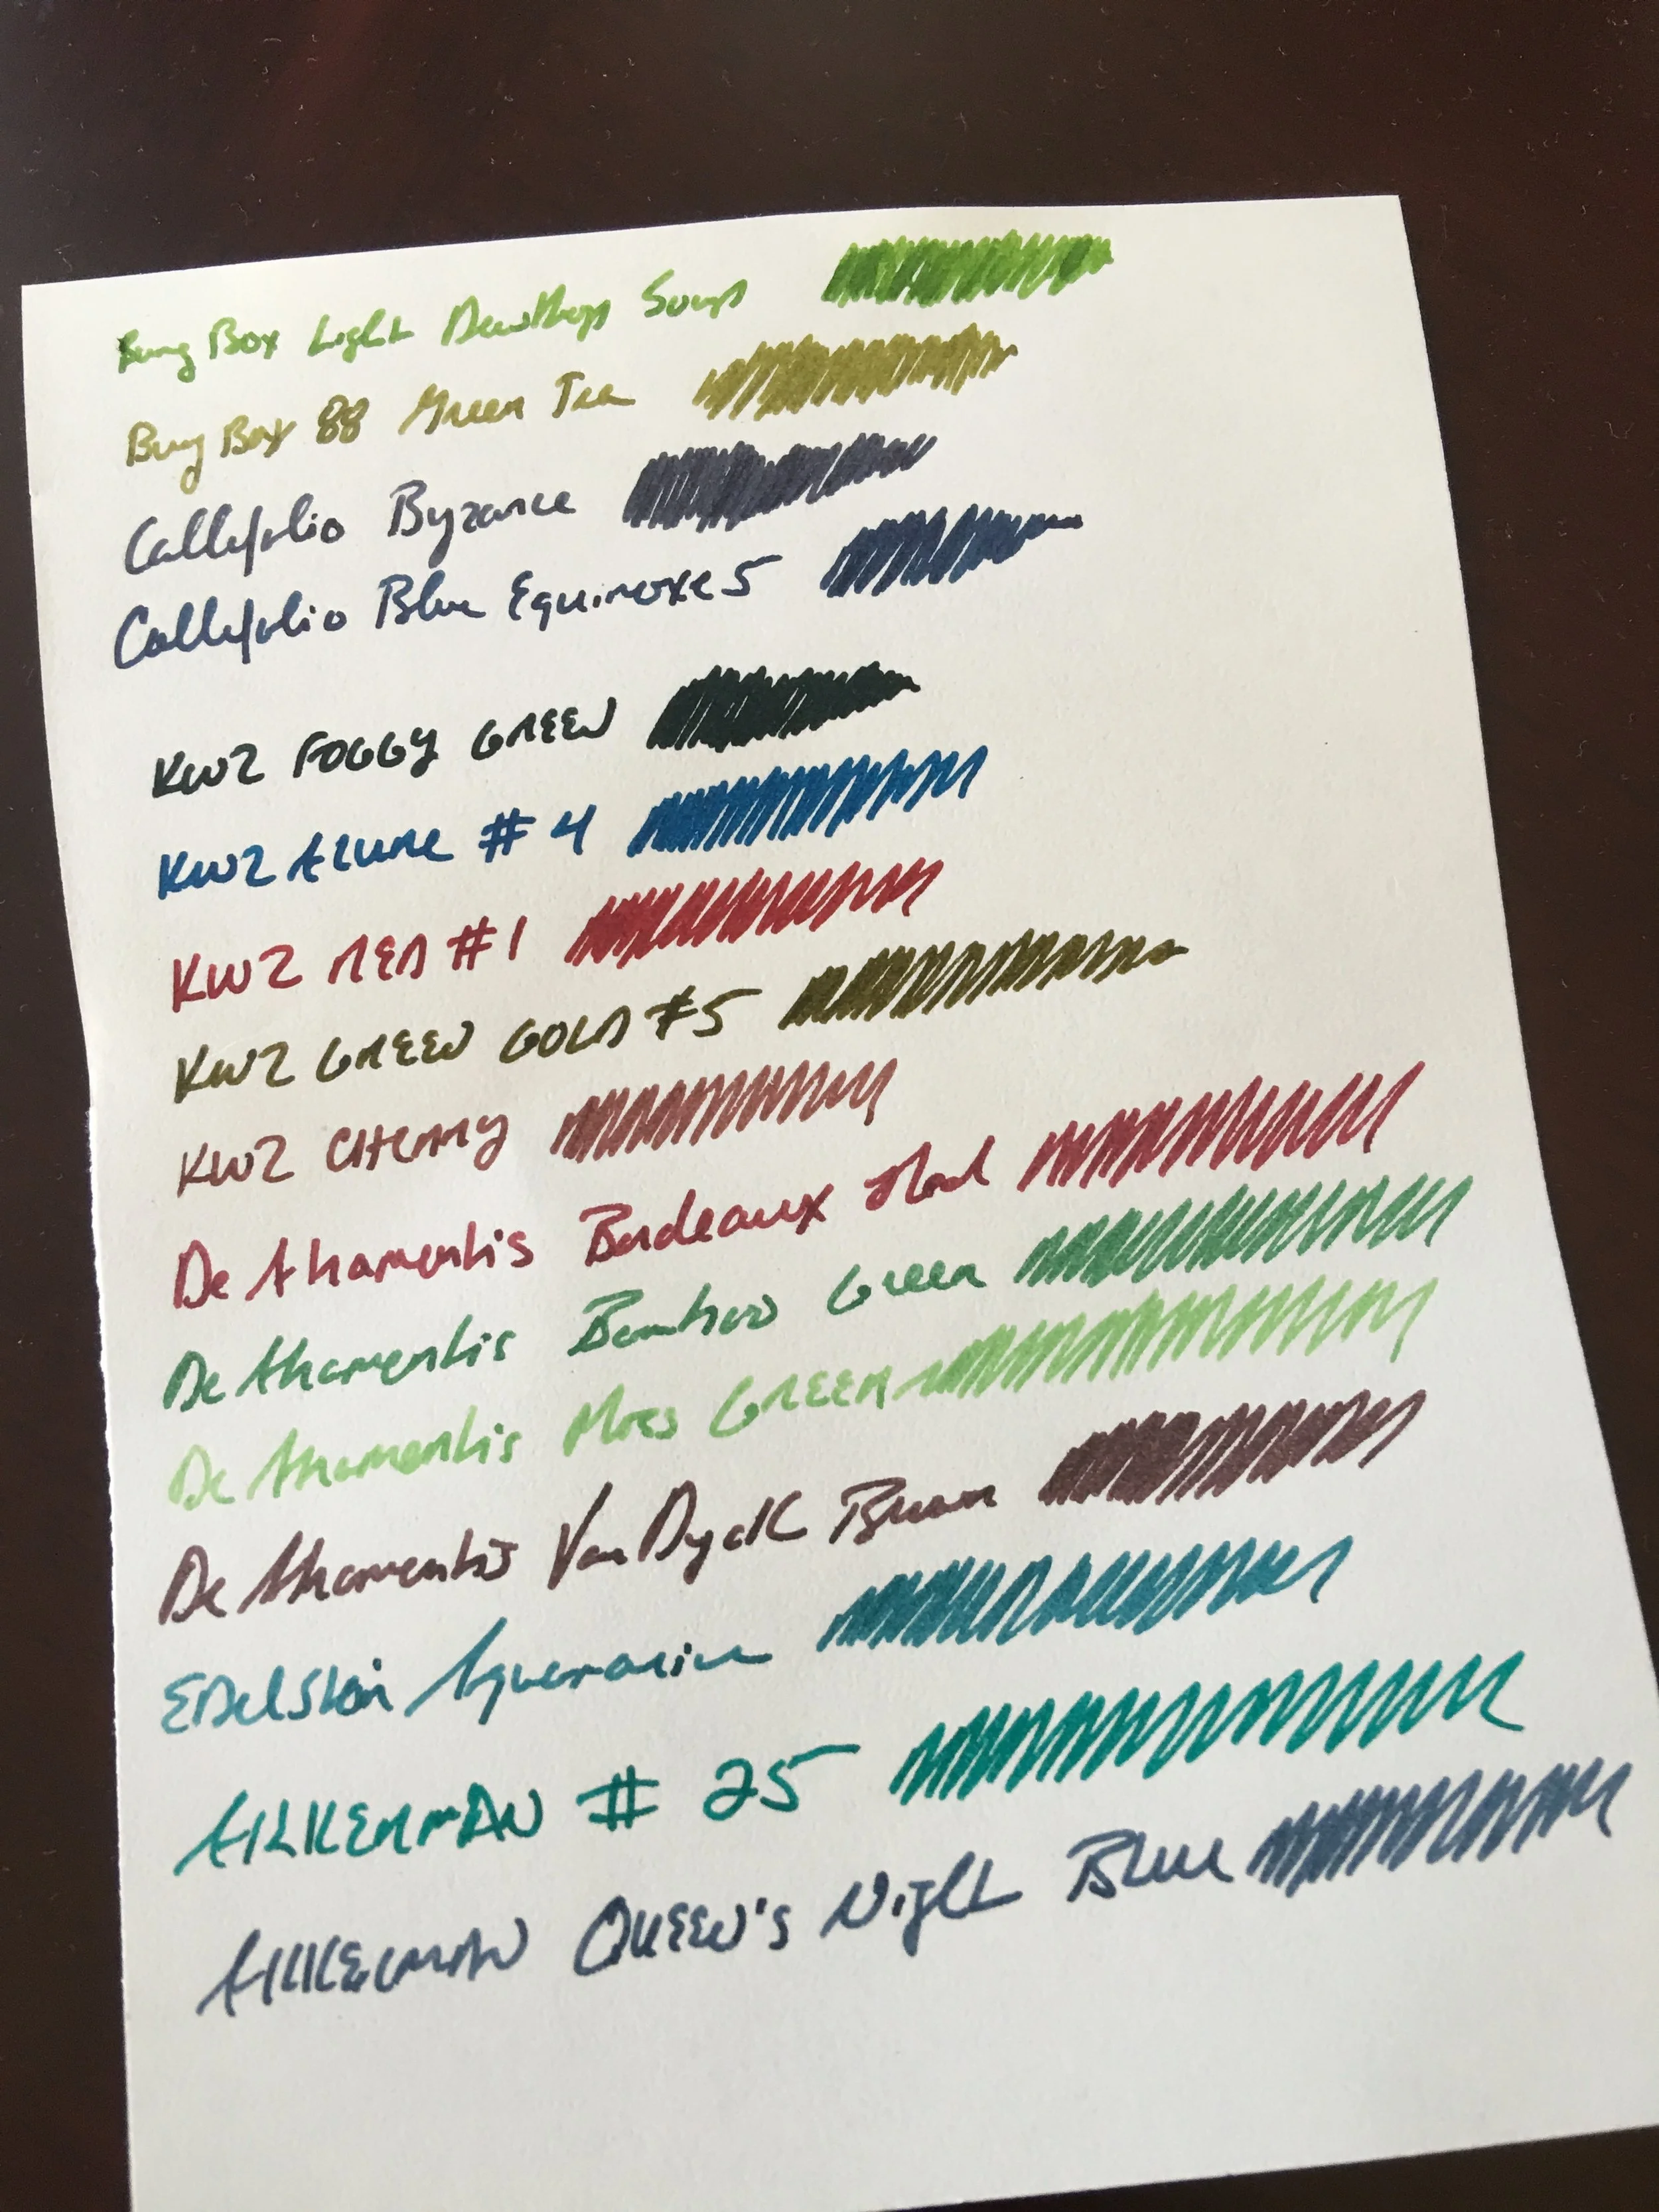 Bung Box Light Dewdrops Soup
Bung Box 88 Green Tea
Callifolio Byzance
Callifolio Blue Equinoxe 5
KWZ FOGGY GREEN
KWZ AZURE # 4
KWZ RED #1
KWZ GREEN GOLD #5
KWZ CHERRY
De Atramentis Bordeaux Red
De Atramentis Bamboo Green
De Atramentis Moss GREEN
De Atramentis Van Dyck Brown
Edelstein Aquamarine
AKKERMAN # 25
AKKERMAN QUEEN'S Night Blue